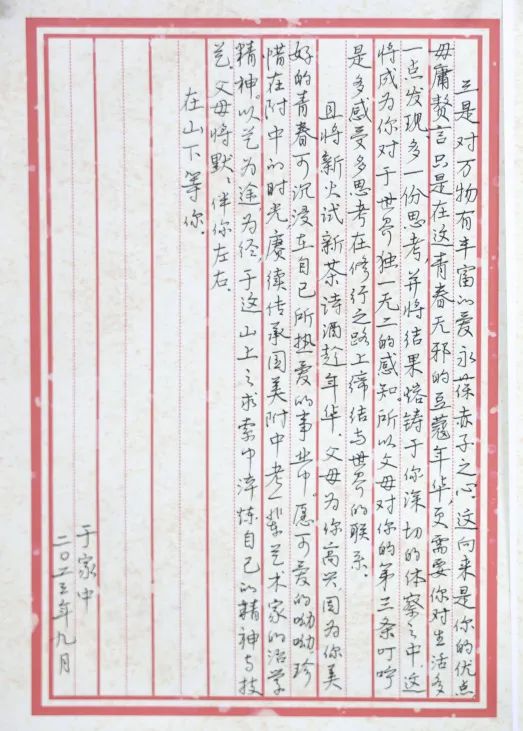 三是对万物有丰富的爱,永葆赤子之心,这向来是你的优点
毋庸赘言,只是在这青春无邪的豆蔻年华更需要你对生活多
一点发现,多一份思考,并将结果熔铸于你深切的体察之中,这
将成为你对于世界独一无二的感知。所以父母对你的第三条叮咛
是多感受多思考在修行之路上缔结与世界的联系。
且将新火试新茶,诗酒趁年华。父母为你高兴,因为你美
好的青春可沉浸在自己所热爱的事业中。愿可爱的呦呦,珍
惜在附中的时光,赓续传承国美附中老一辈艺术家的治学
精神。以艺为途,为径,于这山上之求索中淬炼自己的精神与技
艺。父母将默々伴你左右。
在山下等你。
于家中
二〇二三年九月